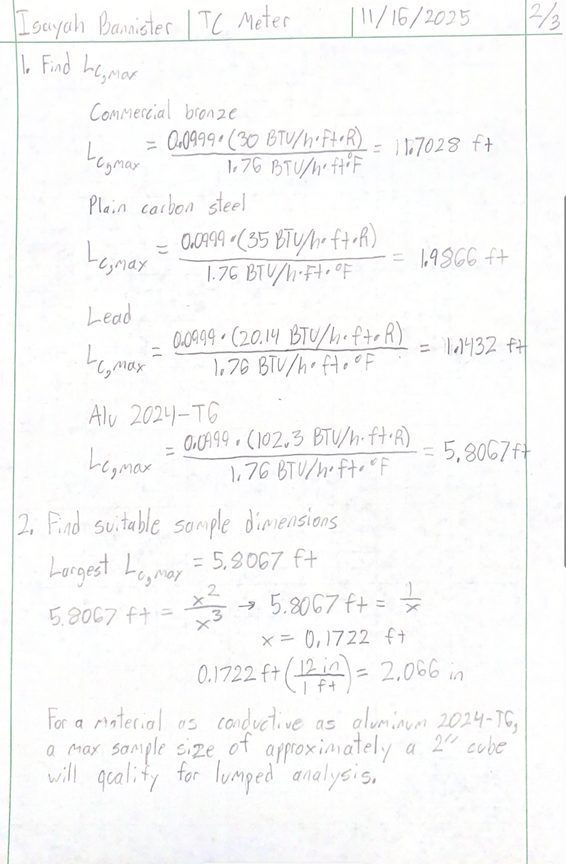 Isayah Bannister | TC Meter | 11/16/2025 | 2/3
1. Find L_c,max
Commercial bronze
L_c,max = 0.0999·(30 BTU/h·ft·R) / 1.76 BTU/h·ft·°F = 1.7028 ft
Plain carbon steel
L_c,max = 0.0999·(35 BTU/h·ft·R) / 1.76 BTU/h·Ft·°F = 1.9866 ft
Lead
L_c,max = 0.0999·(20.14 BTU/h·ft·R) / 1.76 BTU/h·ft·°F = 1.1432 ft
Alu 2024-T6
L_c,max = 0.0999·(102.3 BTU/h·ft·R) / 1.76 BTU/h·ft·°F = 5.8067 ft
2. Find suitable sample dimensions
Largest L_c,max = 5.8067 ft
5.8067 ft = x²/x³ → 5.8067 ft = 1/x
x = 0.1722 ft
0.1722 ft (12 in / 1 ft) = 2.066 in
For a material as conductive as aluminum 2024-T6,
a max sample size of approximately a 2" cube
will qualify for lumped analysis.